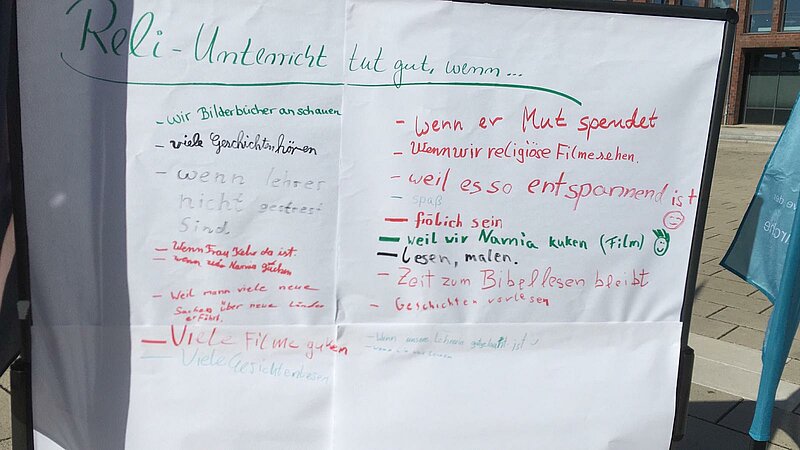 Reli-Unterricht tut gut, wenn...
- wir Bilderbücher anschauen
- viele Geschichten hören
- wenn lehrer
nicht gestrest
sind
- Wenn Frau da ist.
- wenn Narnia
- Weil mann viele neue
Sachen über neue Länder
erfährt.
- Viele Filme guken
- Viele Gesichten lesen
- wenn er Mut spendet
- Wenn wir religiöse Filme sehen.
- weil es so entspannend ist
- spaß
- frölich sein
- weil wir Narnia kuken (Film)
- Lesen, malen.
- Zeit zum Bibellesen bleibt
- Geschichten vorlesen
- Wenn unsere Lehrerin ist